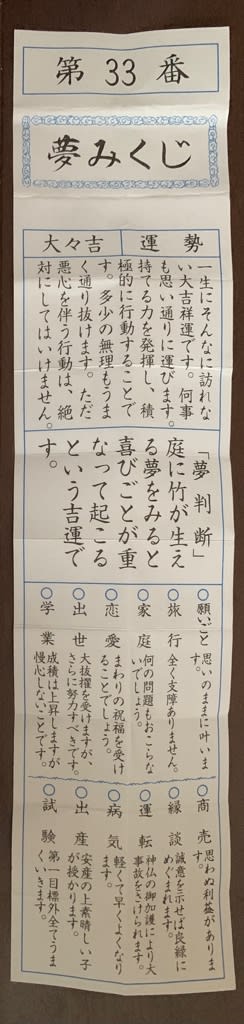 第33番
夢みくじ
運勢
大々吉
一生にそんなに訪れな
い大吉祥運です。何事
も思い通りに運びます。
持てる力を発揮し、積
極的に行動することで
す。多少の無理もうま
く通り抜けます。ただ
悪心を伴う行動は、絶
対にしてはいけません。
「夢判断」
庭に竹が生え
る夢をみると
喜びごとが重
なって起こる
という吉運で
す。
○願いごと 思いのままに叶いま
す。
○旅行 全く支障ありません。
○家庭 何の問題もおこらな
いでしょう。
○恋愛 まわりの祝福を受け
ることでしょう。
○出世 大抜擢を受けますが、
さらに努力すべきです。
○学業 成績は上昇しますが
慢心しないことです。
○商売 思わぬ利益がありま
す。
○縁談 誠意を示せば良縁に
めぐまれます。
○運転 神仏の御加護により大
事故をさけられます。
○病気 軽くて早くよくなり
ます。
○出産 安産の上素晴しい子
が授かります。
○試験 第一目標外全てうま
くいきます。